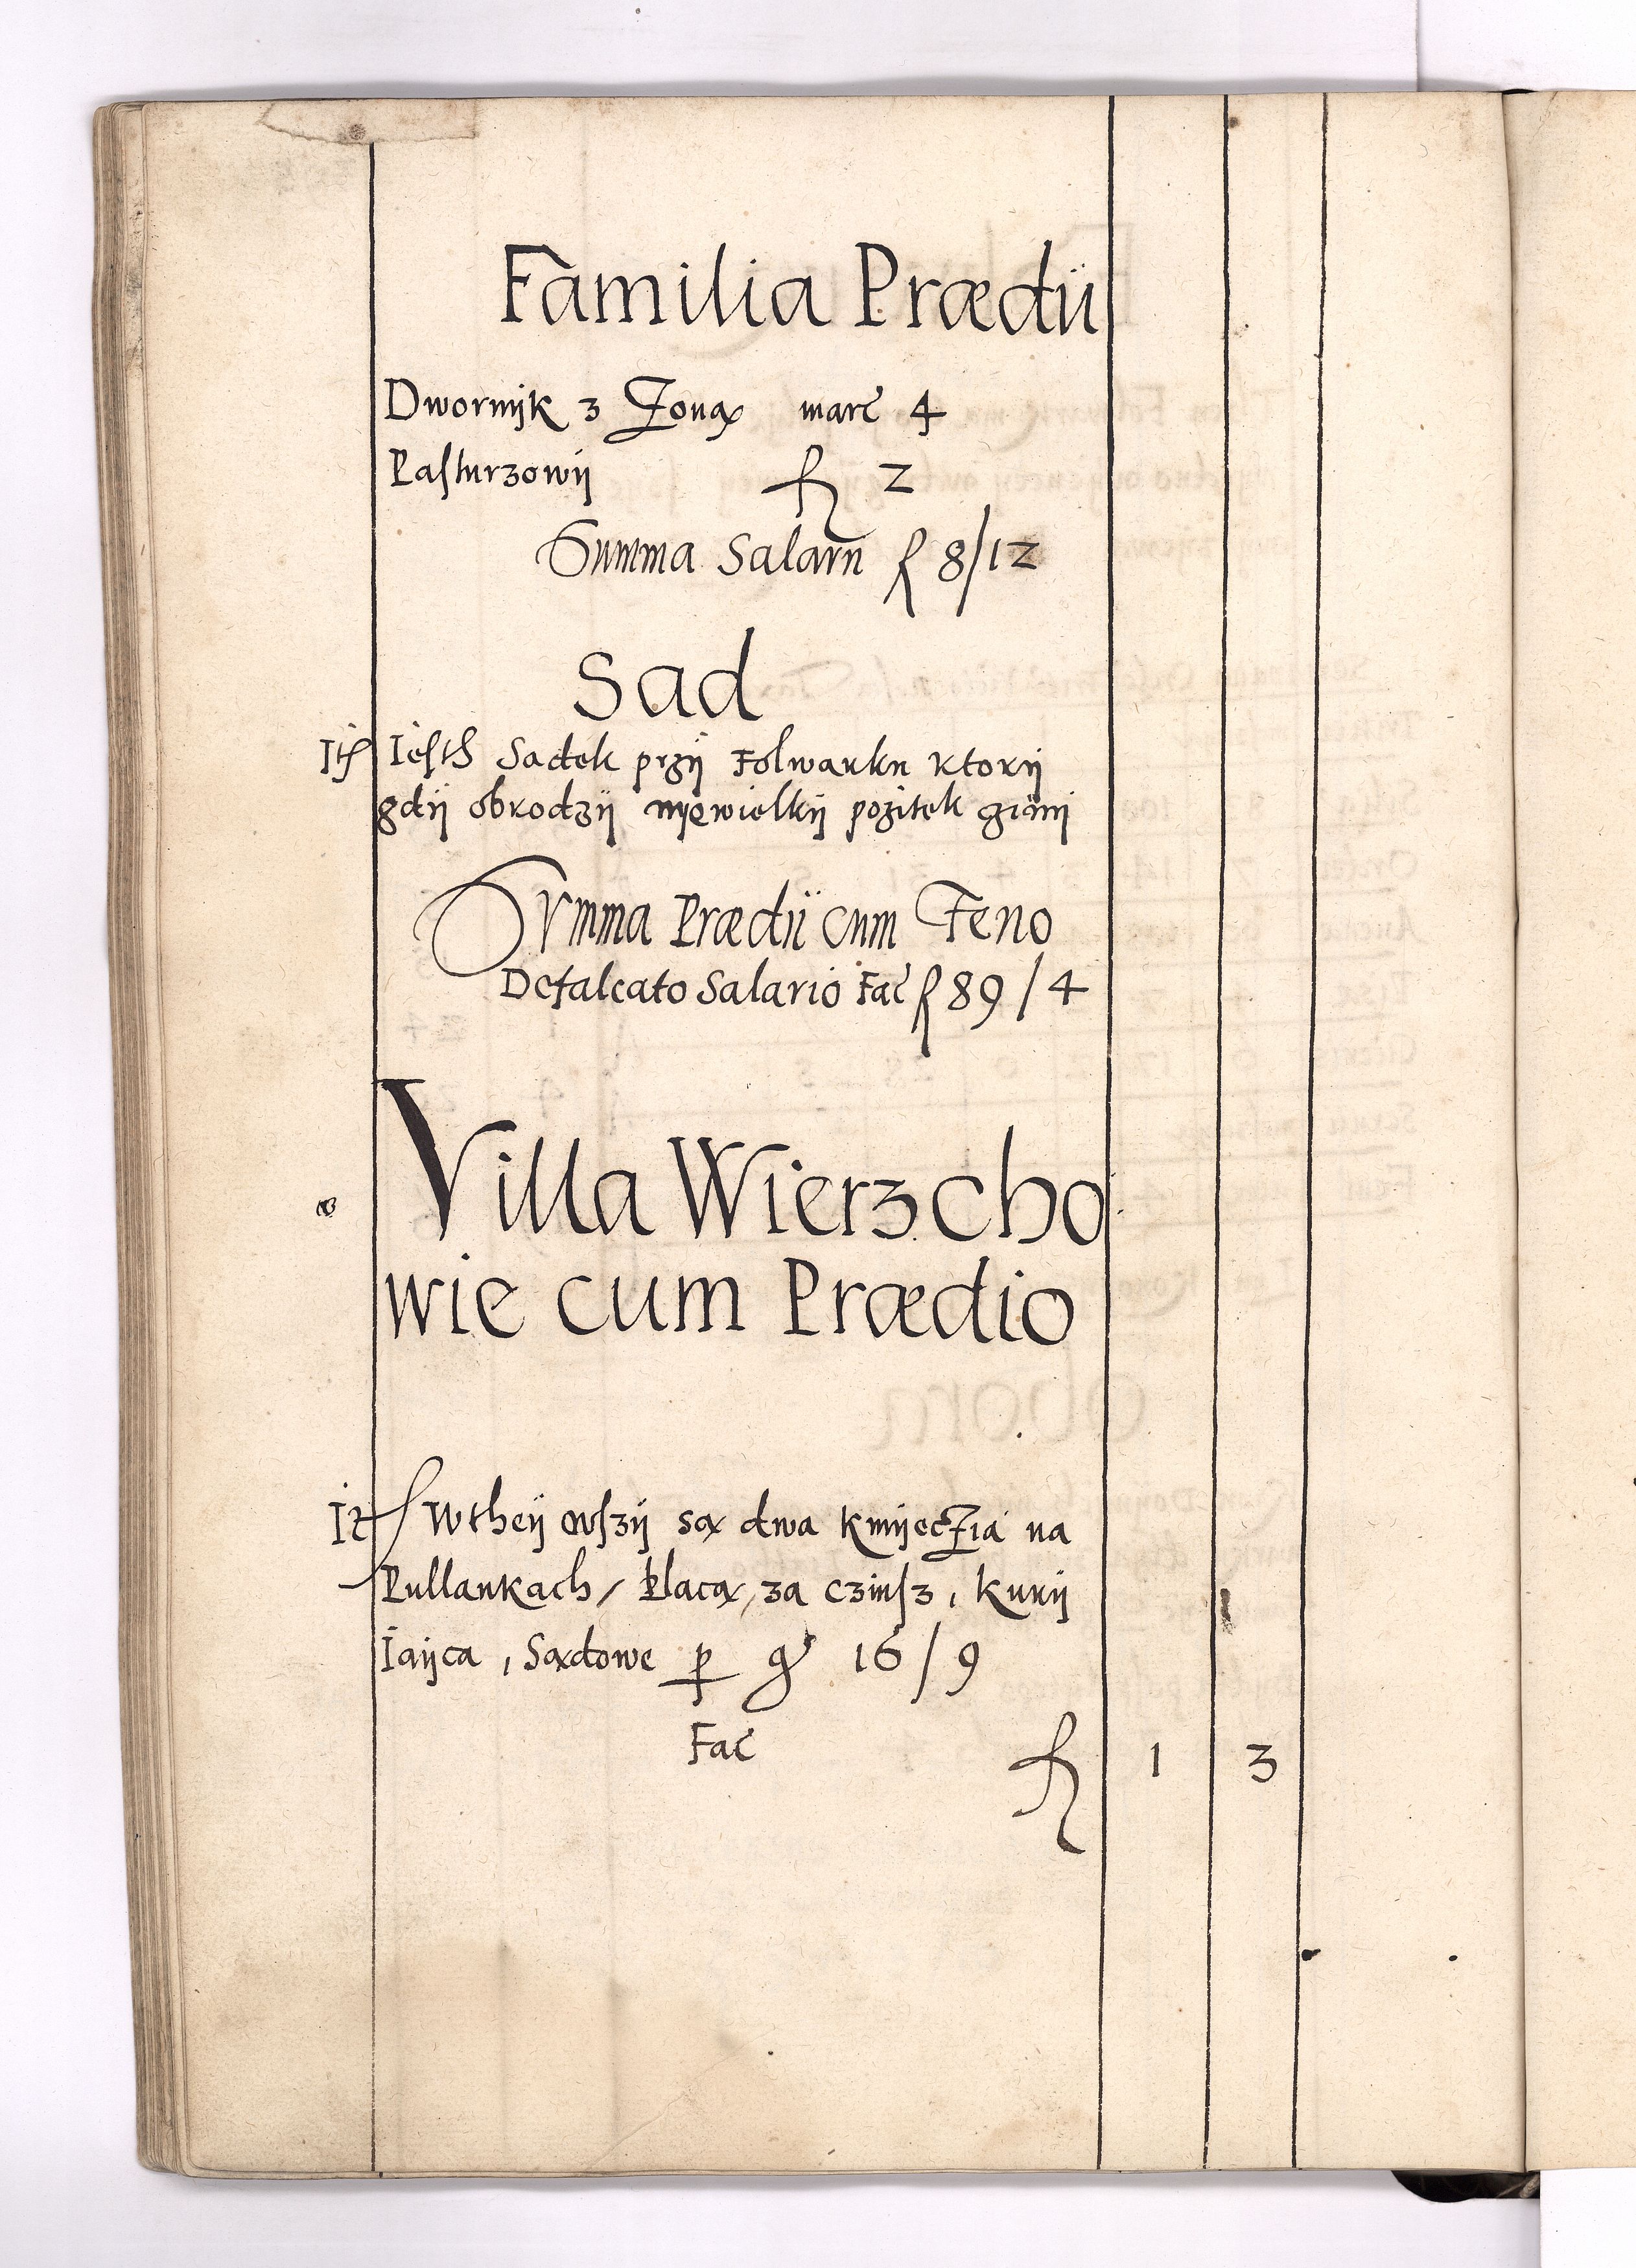 Familia Prædii
Dwornijk z Zoną marc 4
Pasturzowij fl 2
Summa Salarii fl 8/12
Sad
Itē Iesth Sadek przij Folwarku ktorij
gdij obrodzij nyewielkij pozitek czini
Summa Prædii cum Feno
Defalcato Salario Fac fl 89 / 4
Villa Wierzcho
wie cum Prædio
It Wtheij wszij są dwa kmijeczia na
Pullankach / Płacą, za czinsz, kurij
Iaijca, Sądowe p gr 16 / 9
Fac fl 1 3